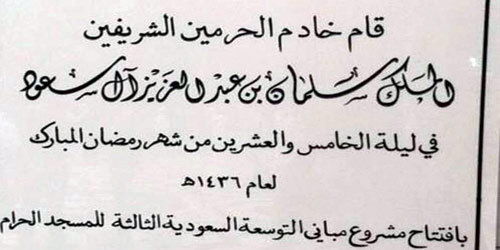 قام خادم الحرمين الشريفين
الملك سلمان بن عبد العزيز آل سعود
في ليلة الخامس والعشرين من شهر رمضان المبارك
لعام ١٤٣٦هـ
بافتتاح مشروع مباني التوسعة السعودية الثالثة للمسجد الحرام